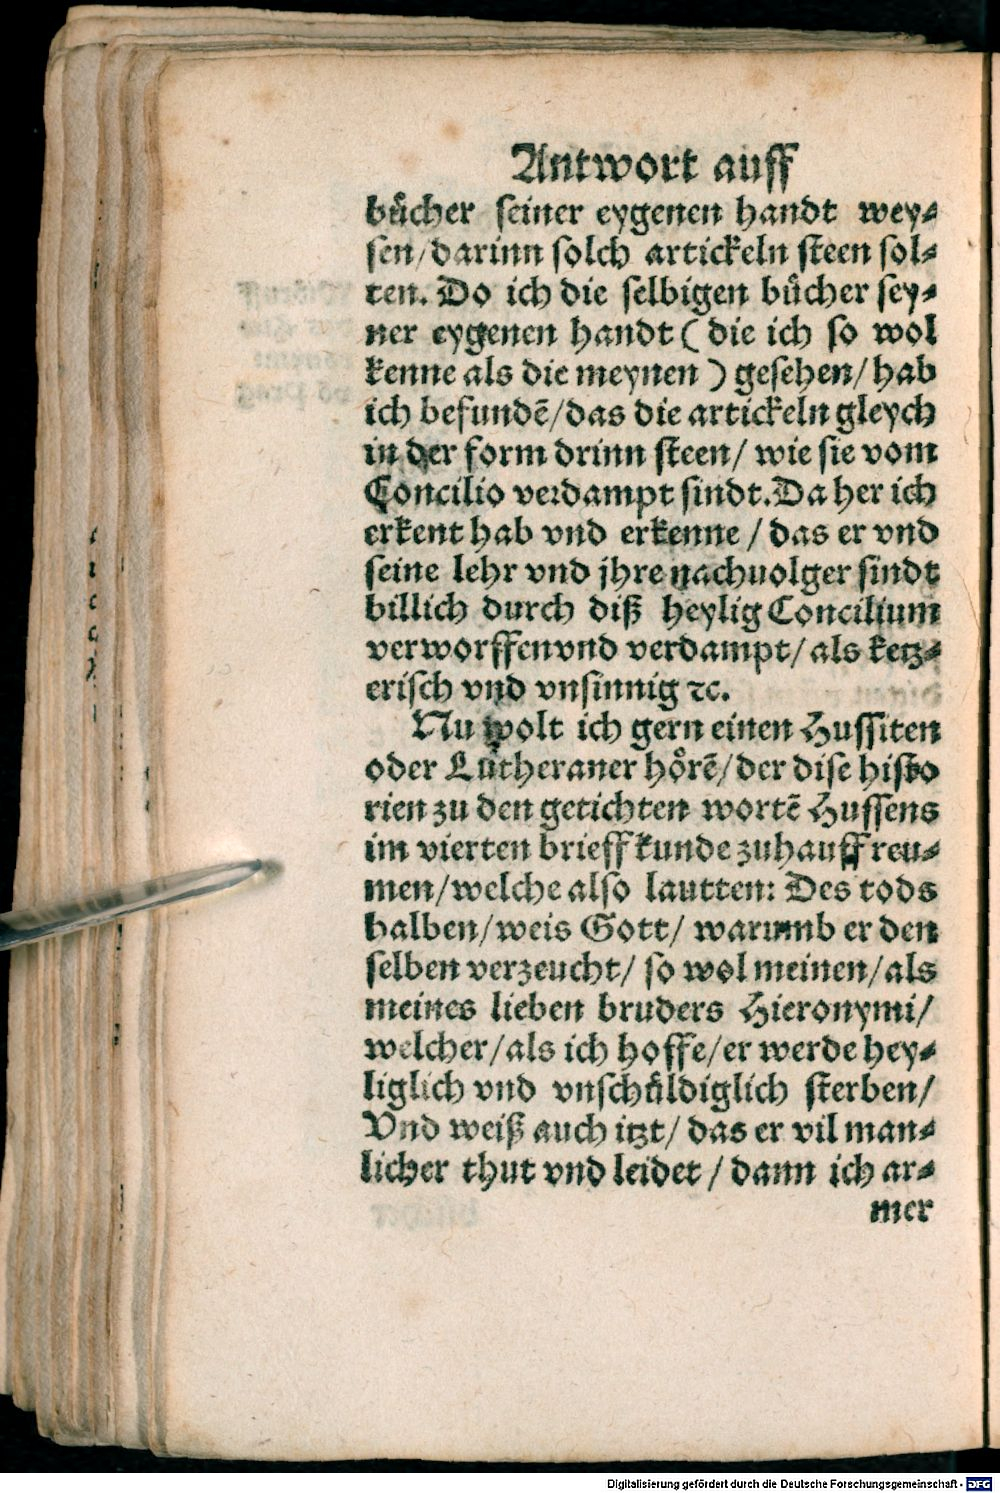 Antwort auff
bůcher seiner eygenen handt wey⸗
sen/darinn solch artickeln steen sol⸗
ten. Do ich die selbigen bůcher sey⸗
ner eygenen handt ( die ich so wol
kenne als die meynen ) gesehen/ hab
ich befundē/das die artickeln gleych
in der form drinn steen/ wie sie vom
Concilio verdampt sindt.Da her ich
erkent hab vnd erkenne / das er vnd
seine lehr vnd jhre nachuolger sindt
billich durch diß heylig Concilium
verworffen vnd verdampt/ als ketz⸗
erisch vnd vnsinnig ⁊c.
Nu wolt ich gern einen Hussiten
oder Lutheraner hoͤrē/der dise histo
rien zu den getichten wortē Hussens
im vierten brieff kunde zuhauff reu⸗
men/welche also lautten: Des tods
halben/weis Gott/ warumb er den
selben verzeucht/ so wol meinen/als
meines lieben bruders Hieronymi/
welcher/als ich hoffe/er werde hey⸗
liglich vnd vnschůldiglich sterben/
Vnd weiß auch itzt/ das er vil man⸗
licher thut vnd leidet / dann ich ar⸗
mer
Digitalisierung gefördert durch die Deutsche Forschungsgemeinschaft - DFG